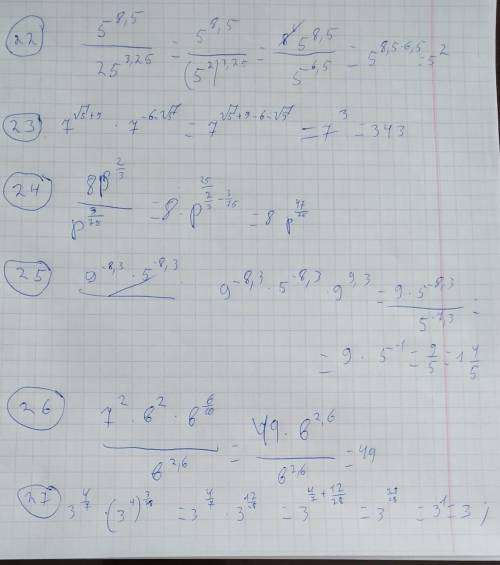 22 5^{8,5} / 25^{3,25} = 5^{8,5} / (5^2)^{3,25} = 5^{8,5} / 5^{6,5} = 5^{8,5-6,5} = 5^2
23) 7^{√5+9} · 7^{-6-√5} = 7^{√5+9-6-√5} = 7^3 = 343
24 8p^{2/3} / p^{3/25} = 8 · p^{2/3 - 3/25} = 8 p
25 9^{-8,3} · 5^{-8,3} 9^{-8,3} · 5^{-8,3} · 9^{9,3} = 9 · 5^{-8,3} =
= 9 · 5^{-1} = 9/5 = 1 4/5
26 7^2 · b^2 · b^{6/10} / b^{2,6} = 49 · b^{2,6} / b^{2,6} = 49
27 3^{4/7} · (3^4)^{3/28} = 3^{4/7} · 3^{12/28} = 3^{4/7 + 12/28} = 3^{28/28} = 3^1 = 3